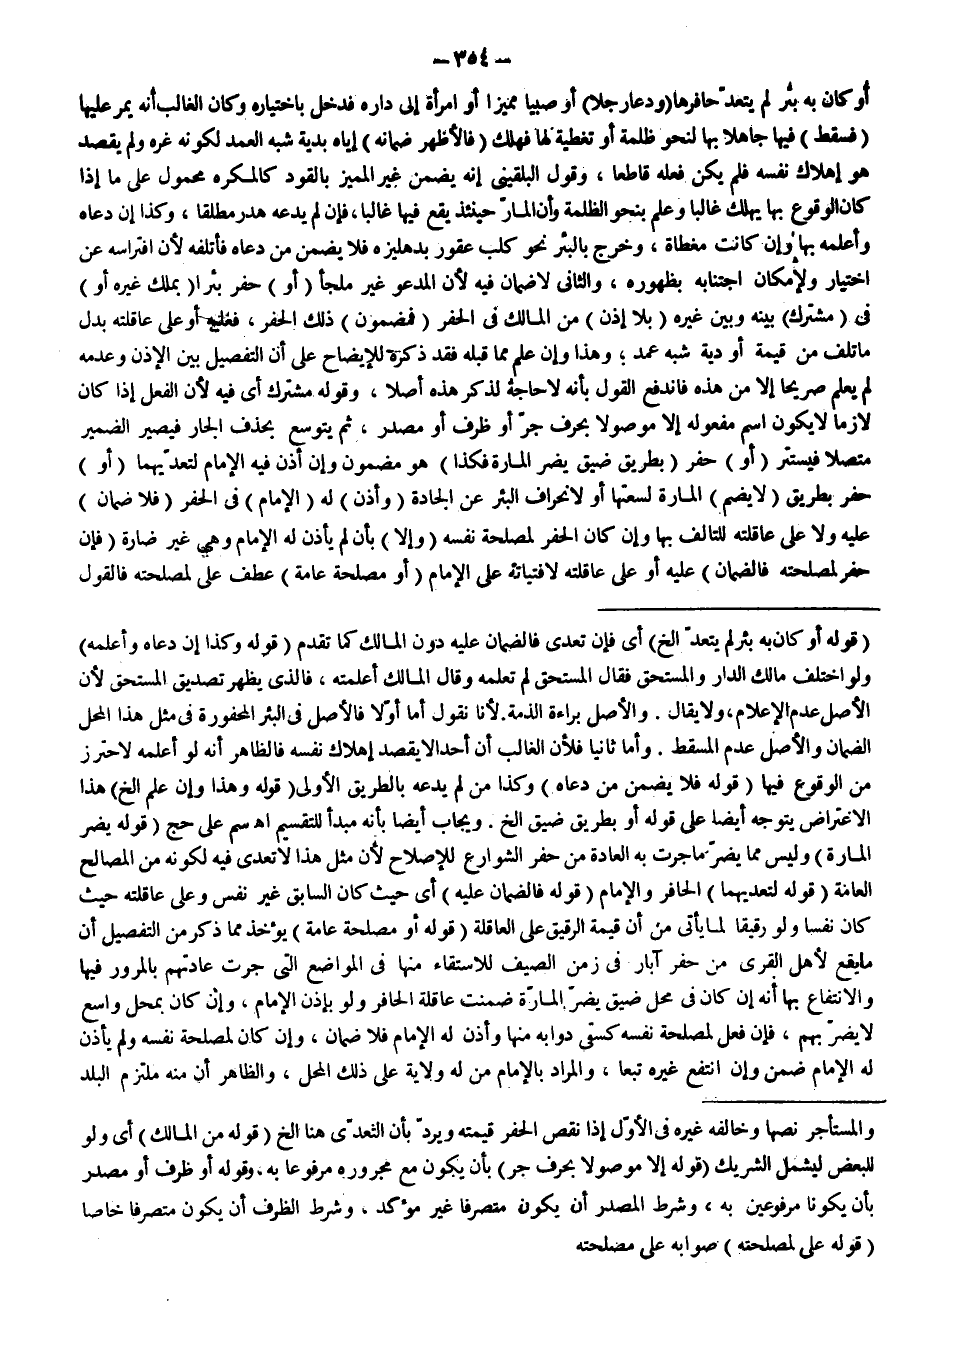 — ٣٥٤ —
أو كان به بئر لم يتعد حافرها (ودعا رجلا) أو صبيا مميزا أو امرأة إلى داره فدخل باختياره وكان الغالب أنه يمر عليها
( فسقط ) فيها جاهلا بها لنحو ظلمة أو تغطية لها فهلك ( فالأظهر ضمانه ) إياه بدية شبه العمد لكونه غره ولم يقصد
هو إهلاك نفسه فلم يكن فعله قاطعا ، وقول البلقيني إنه يضمن غير المميز بالقود كالمكره محمول على ما إذا
كان الوقوع بها يهلك غالبا وعلم بنحو الظلمة وأن المارّ حينئذ يقع فيها غالبا، فإن لم يدعه هدر مطلقا ، وكذا إن دعاه
وأعلمه بها وإن كانت مغطاة ، وخرج بالبئر نحو كلب عقور بدهليزه فلا يضمن من دعاه فأتلفه لأن افتراسه عن
اختيار ولإمكان اجتنابه بظهوره ، والثانى لاضمان فيه لأن المدعو غير ملجأ ( أو ) حفر بئرا ( بملك غيره أو )
فى ( مشترك) بينه وبين غيره ( بلا إذن ) من المالك فى الحفر ( فمضمون ) ذلك الحفر ، فعليه أو على عاقلته بدل
ماتلف من قيمة أو دية شبه عمد ؛ وهذا وإن علم مما قبله فقد ذكره للإيضاح على أن التفصيل بين الإذن وعدمه
لم يعلم صريحا إلا من هذه فاندفع القول بأنه لاحاجة لذكر هذه أصلا ، وقوله مشترك أى فيه لأن الفعل إذا كان
لازما لايكون اسم مفعوله إلا موصولا بحرف جرّ أو ظرف أو مصدر ، ثم يتوسع بحذف الجار فيصير الضمير
متصلا فيستتر ( أو ) حفر ( بطريق ضيق يضر المارة فكذا ) هو مضمون وإن أذن فيه الإمام لتعديهما ( أو )
حفر بطريق ( لايضم ) المارة لسعتها أو لانحراف البئر عن الجادة ( وأذن ) له ( الإمام ) فى الحفر ( فلا ضمان )
عليه ولا على عاقلته للتالف بها وإن كان الحفر لمصلحة نفسه ( وإلا ) بأن لم يأذن له الإمام وهي غير ضارة ( فإن
حفر لمصلحته فالضمان ) عليه أو على عاقلته لافتياته على الإمام ( أو مصلحة عامة ) عطف على لمصلحته فالقول
( قوله أو كان به بئر لم يتعدّ الخ) أى فإن تعدى فالضمان عليه دون المالك كما تقدم ( قوله وكذا إن دعاه وأعلمه)
ولو اختلف مالك الدار والمستحق فقال المستحق لم تعلمه وقال المالك أعلمته ، فالذى يظهر تصديق المستحق لأن
الأصل عدم الإعلام، ولا يقال . والأصل براءة الذمة. لأنا نقول أما أوّلا فالأصل فى البئر المحفورة فى مثل هذا المحل
الضمان والأصل عدم المسقط . وأما ثانيا فلأن الغالب أن أحدا لايقصد إهلاك نفسه فالظاهر أنه لو أعلمه لاحترز
من الوقوع فيها ( قوله فلا يضمن من دعاه ) وكذا من لم يدعه بالطريق الأولى ( قوله وهذا وإن علم الخ) هذا
الاعتراض يتوجه أيضا على قوله أو بطريق ضيق الخ . ويجاب أيضا بأنه مبدأ للتقسيم اه سم على حج ( قوله يضر
المارة ) وليس مما يضرّ ماجرت به العادة من حفر الشوارع للإصلاح لأن مثل هذا لاتعدى فيه لكونه من المصالح
العامة ( قوله لتعديهما ) الحافر والإمام ( قوله فالضمان عليه ) أى حيث كان السابق غير نفس وعلى عاقلته حيث
كان نفسا ولو رقيقا لما يأتى من أن قيمة الرقيق على العاقلة ( قوله أو مصلحة عامة ) يؤخذ مما ذكر من التفصيل أن
مايقع لأهل القرى من حفر آبار فى زمن الصيف للاستقاء منها فى المواضع التى جرت عادتهم بالمرور فيها
والانتفاع بها أنه إن كان فى محل ضيق يضرّ المارّة ضمنت عاقلة الحافر ولو بإذن الإمام ، وإن كان بمحل واسع
لايضرّ بهم ، فإن فعل لمصلحة نفسه كسقى دوابه منها وأذن له الإمام فلا ضمان ، وإن كان لمصلحة نفسه ولم يأذن
له الإمام ضمن وإن انتفع غيره تبعا ، والمراد بالإمام من له ولاية على ذلك المحل ، والظاهر أن منه ملتزم البلد
والمستأجر نصها وخالفه غيره فى الأوّل إذا نقص الحفر قيمته ويردّ بأن التعدّى هنا الخ ( قوله من المالك ) أى ولو
للبعض ليشمل الشريك (قوله إلا موصولا بحرف جر) بأن يكون مع مجروره مرفوعا به، وقوله أو ظرف أو مصدر
بأن يكونا مرفوعين به ، وشرط المصدر أن يكون متصرفا غير مؤكد ، وشرط الظرف أن يكون متصرفا خاصا
( قوله على لمصلحته ) صوابه على مصلحته